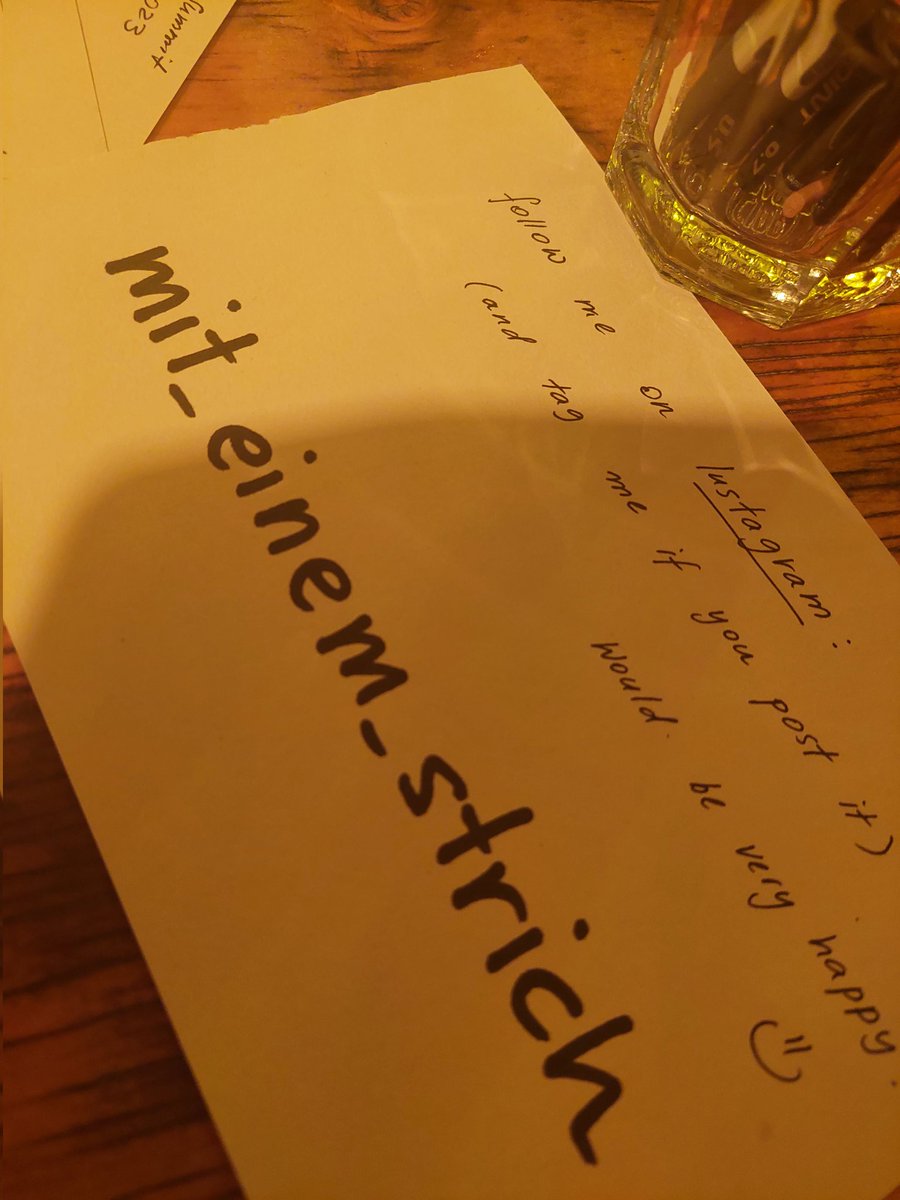 follow me on Instagram:
(and tag me if you post it)
would be very happy.
mit_einem_strich